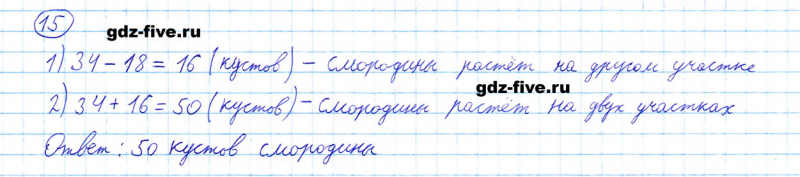 15
gdz-five.ru
1) 34 - 18 = 16 (кустов) - смородины растёт на другом участке
gdz-five.ru
2) 34 + 16 = 50 (кустов) - смородины растёт на двух участках
Ответ: 50 кустов смородины